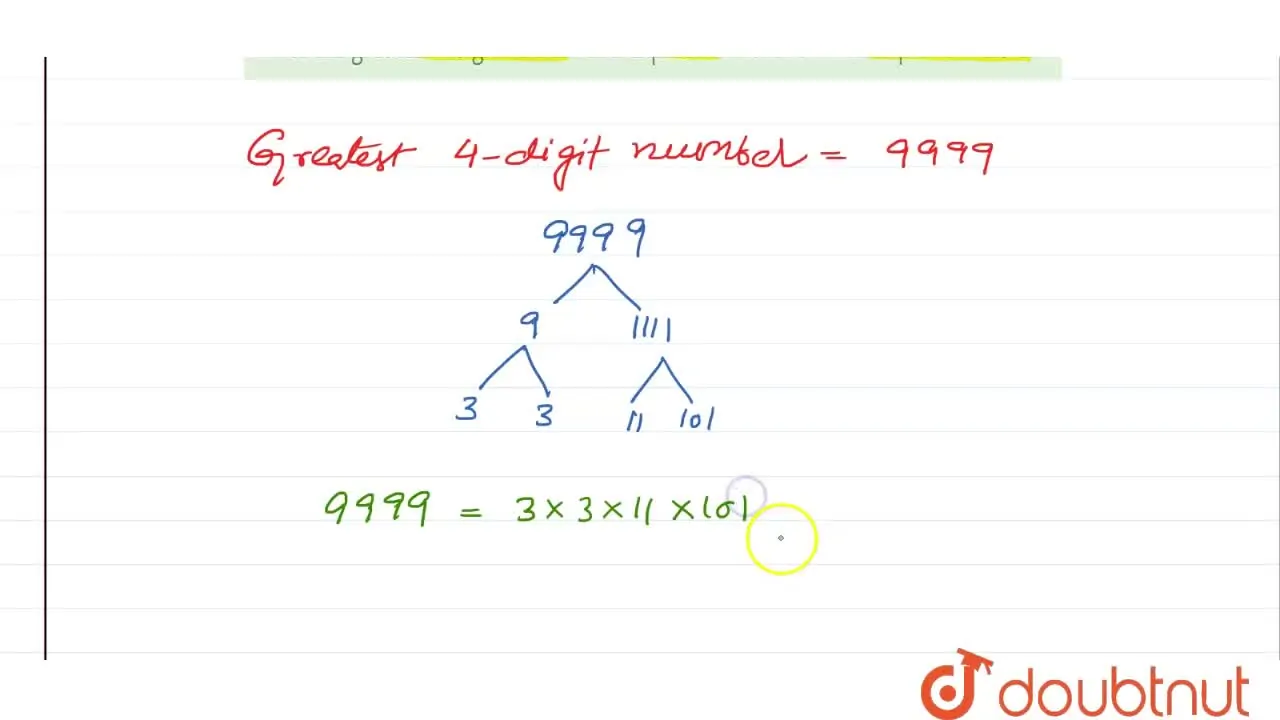 Greatest 4-digit number = 9999
9999
9 1111
3 3 11 101
9999 = 3 × 3 × 11 × 101
doubtnut